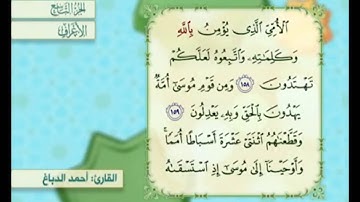 الجزء التاسع
الأعراف
ٱلۡأُمِّيِّ ٱلَّذِي يُؤۡمِنُ بِٱللَّهِ
وَكَلِمَٰتِهِۦ وَٱتَّبِعُوهُ لَعَلَّكُمۡ
تَهۡتَدُونَ ١٥٨ وَمِن قَوۡمِ مُوسَىٰٓ أُمَّةٞ
يَهۡدُونَ بِٱلۡحَقِّ وَبِهِۦ يَعۡدِلُونَ ١٥٩
وَقَطَّعۡنَٰهُمُ ٱثۡنَتَيۡ عَشۡرَةَ أَسۡبَاطًا أُمَمٗاۚ
وَأَوۡحَيۡنَآ إِلَىٰ مُوسَىٰٓ إِذِ ٱسۡتَسۡقَىٰهُ
القارئ: أحمد الدباغ